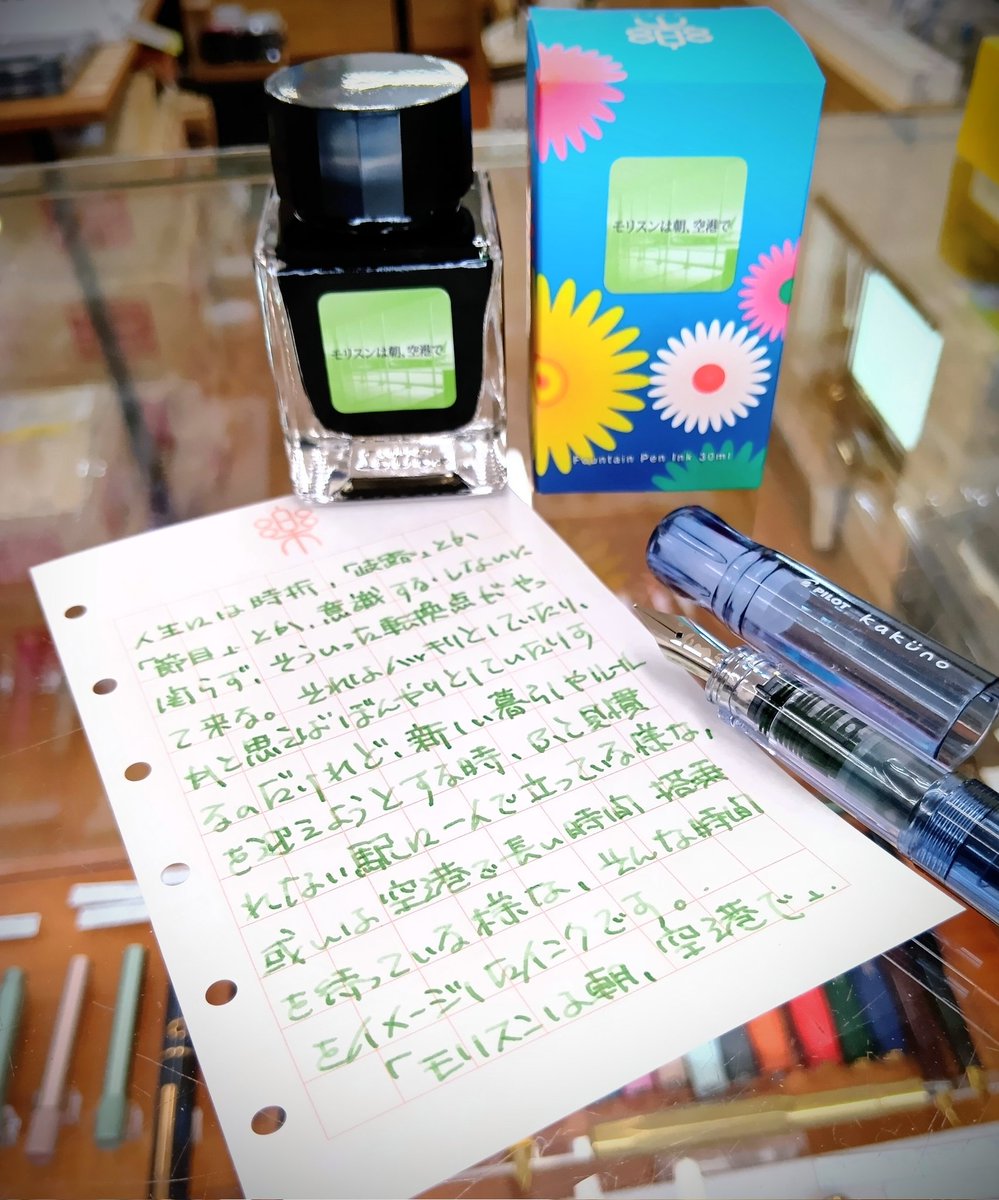 モリスンは朝、空港で
モリスンは朝、空港で
Fountain Pen Ink 30ml
PILOT kaküno
楽
人生には時折、「岐路」とか
「節目」とか、意識する・しないに
関らず、そういった転換点がやっ
て来る。それはハッキリとしていたり、
はと思えばぼんやりとしていたりす
るのだけれど、新しい暮らしやルール
を迎えようとする時、ふと見慣
れない駅に一人で立っている様な、
或いは空港で長い時間搭乗
を待っている様な、そんな時間
をイメージしたインクです。
「モリスンは朝、空港で」、